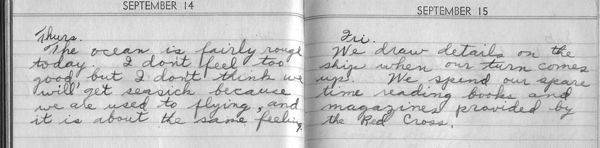 SEPTEMBER 14
Thurs.
The ocean is fairly rough
today. I dont feel too
good but I dont think we
will get seasick because
we are used to flying, and
it is about the same feeling.
SEPTEMBER 15
Fri.
We draw details on the
ship when our turn comes
up. We spend our spare
time reading books and
magazines provided by
the Red Cross.